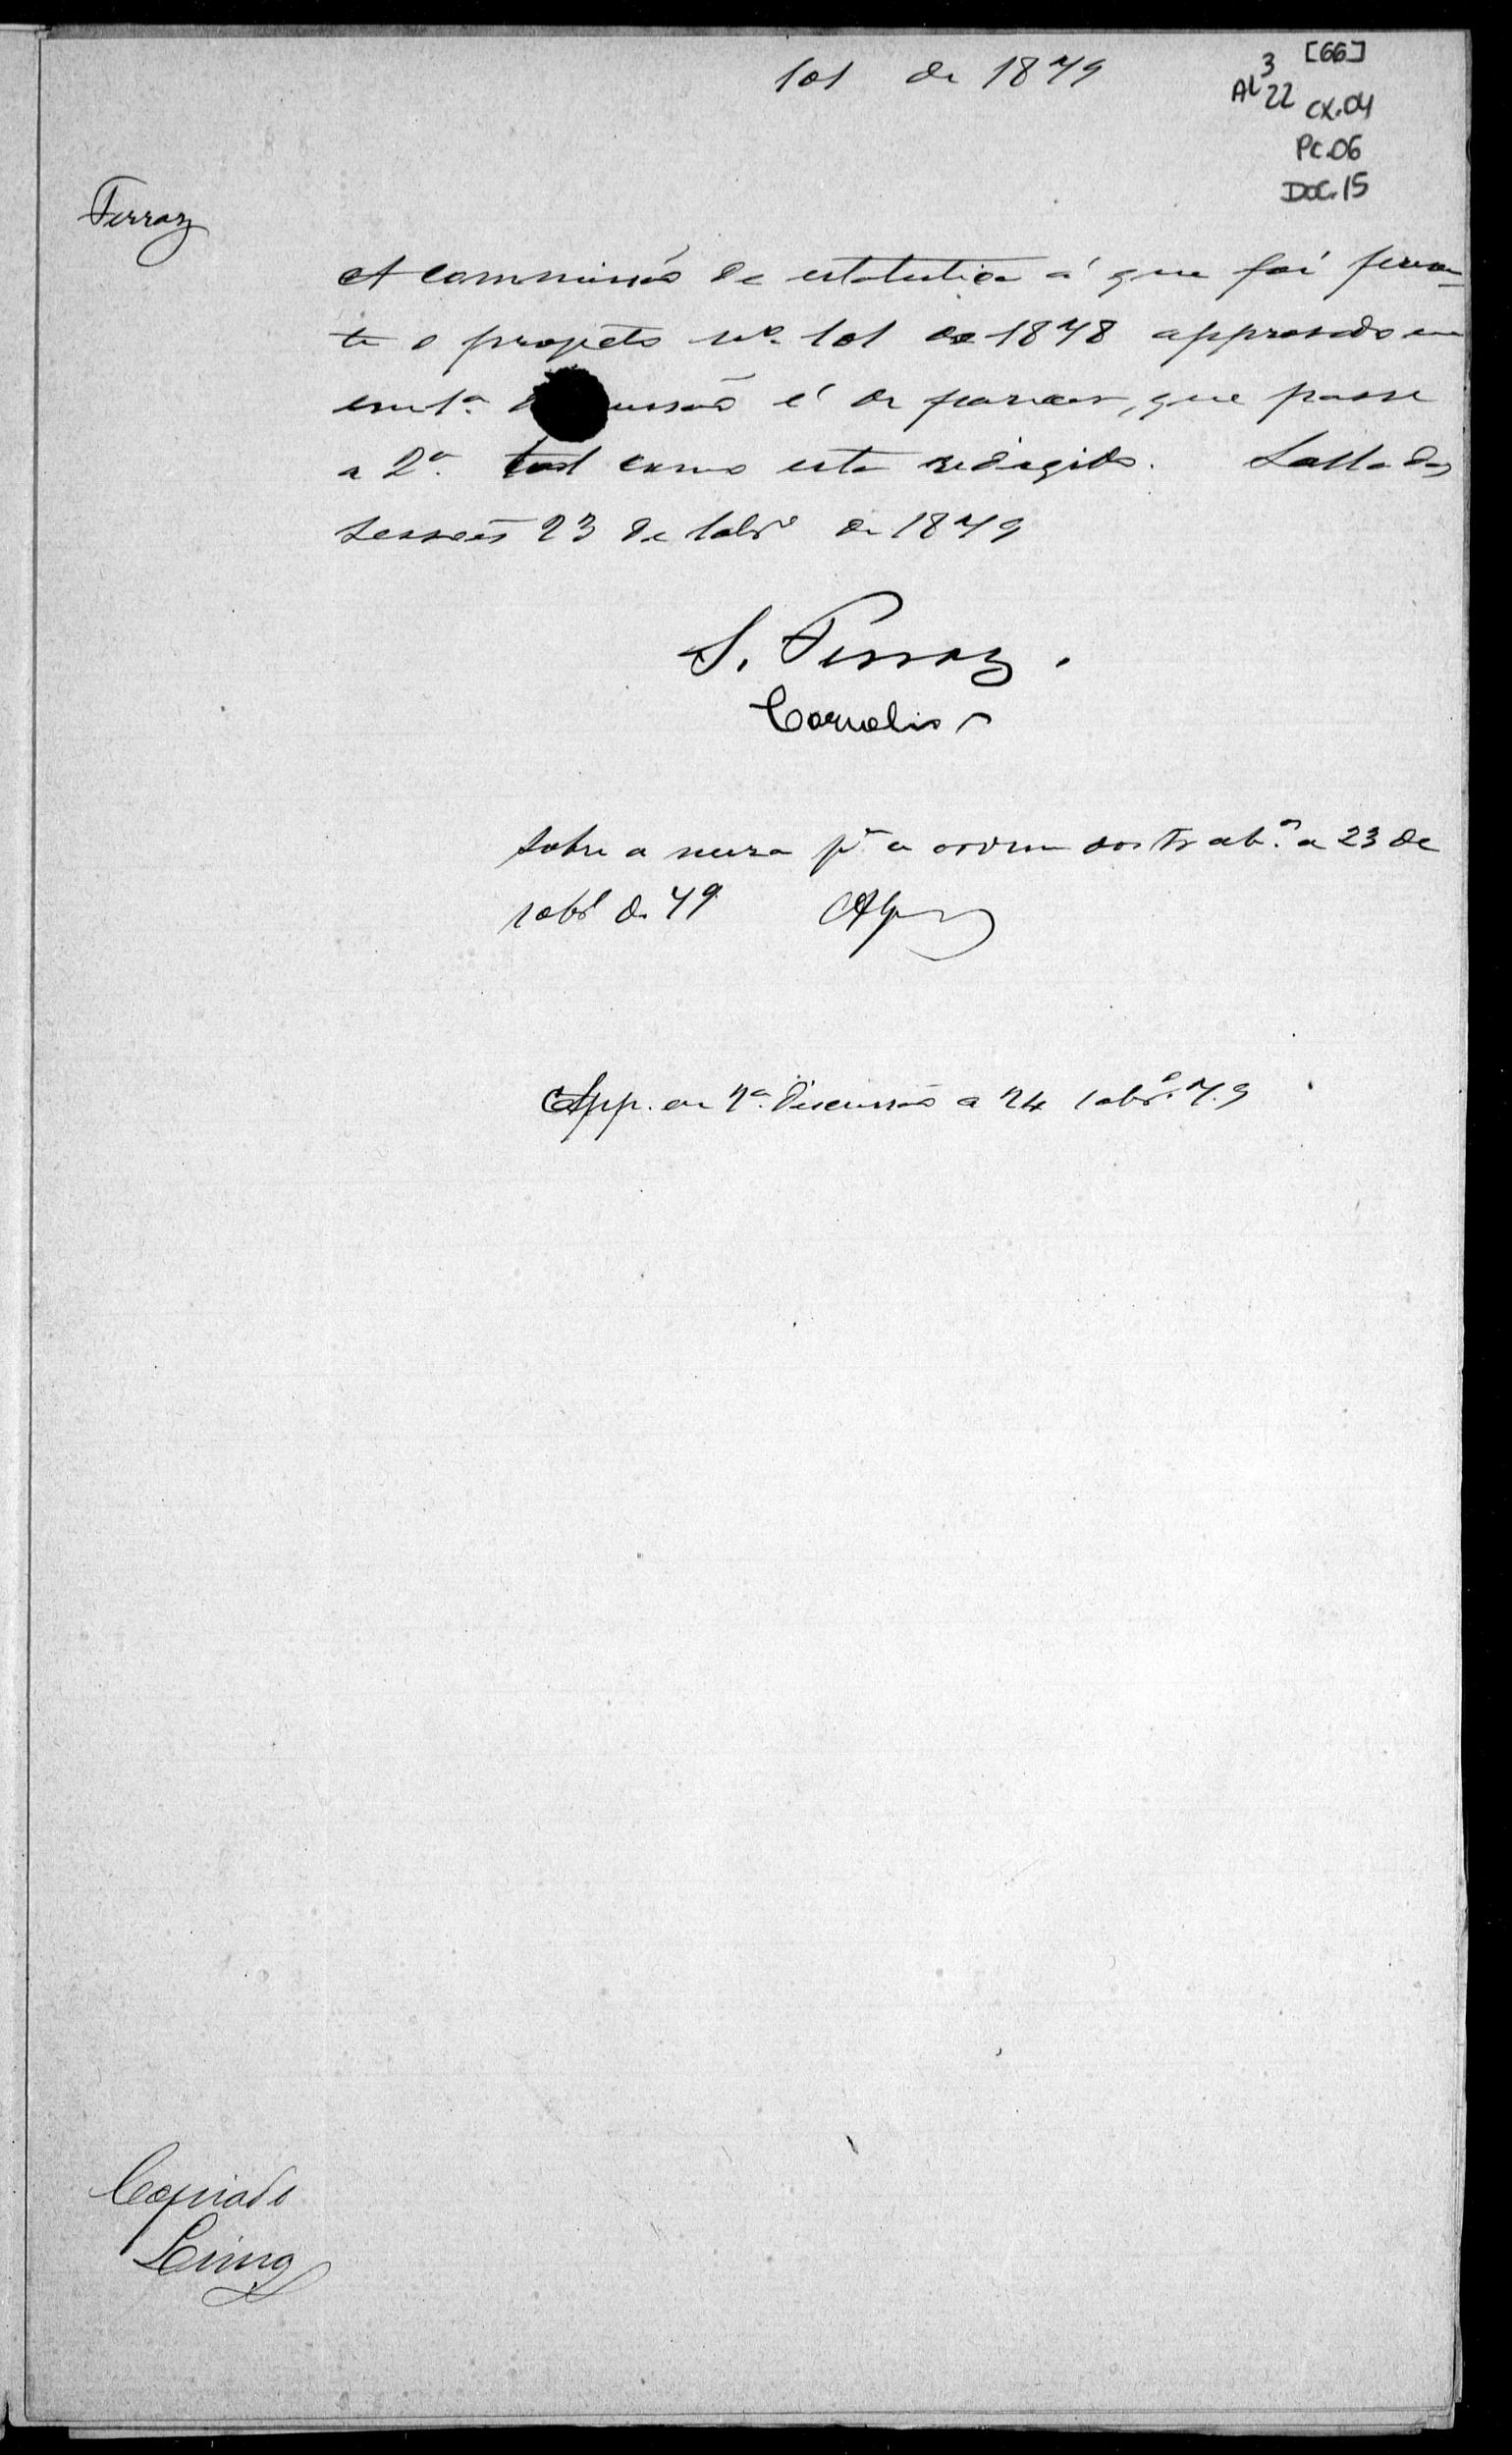 101 de 1879
[66]
3
AL 22 CX.04
PC.06
DOC.15
Ferraz
A commissão de estatistica á que foi presen-
te o projecto nº 101 de 1878 approvado em
em 1ª ussão é de parecer, que passe
a 2ª tal como esta redigido. Salla das
sessões 23 de 10brº de 1879
S. Ferraz.
Sobre a meza pª a ordem dos trabos. a 23 de
10brº de 79
App. em 2ª discussão a 24 10brº 79
Copiado